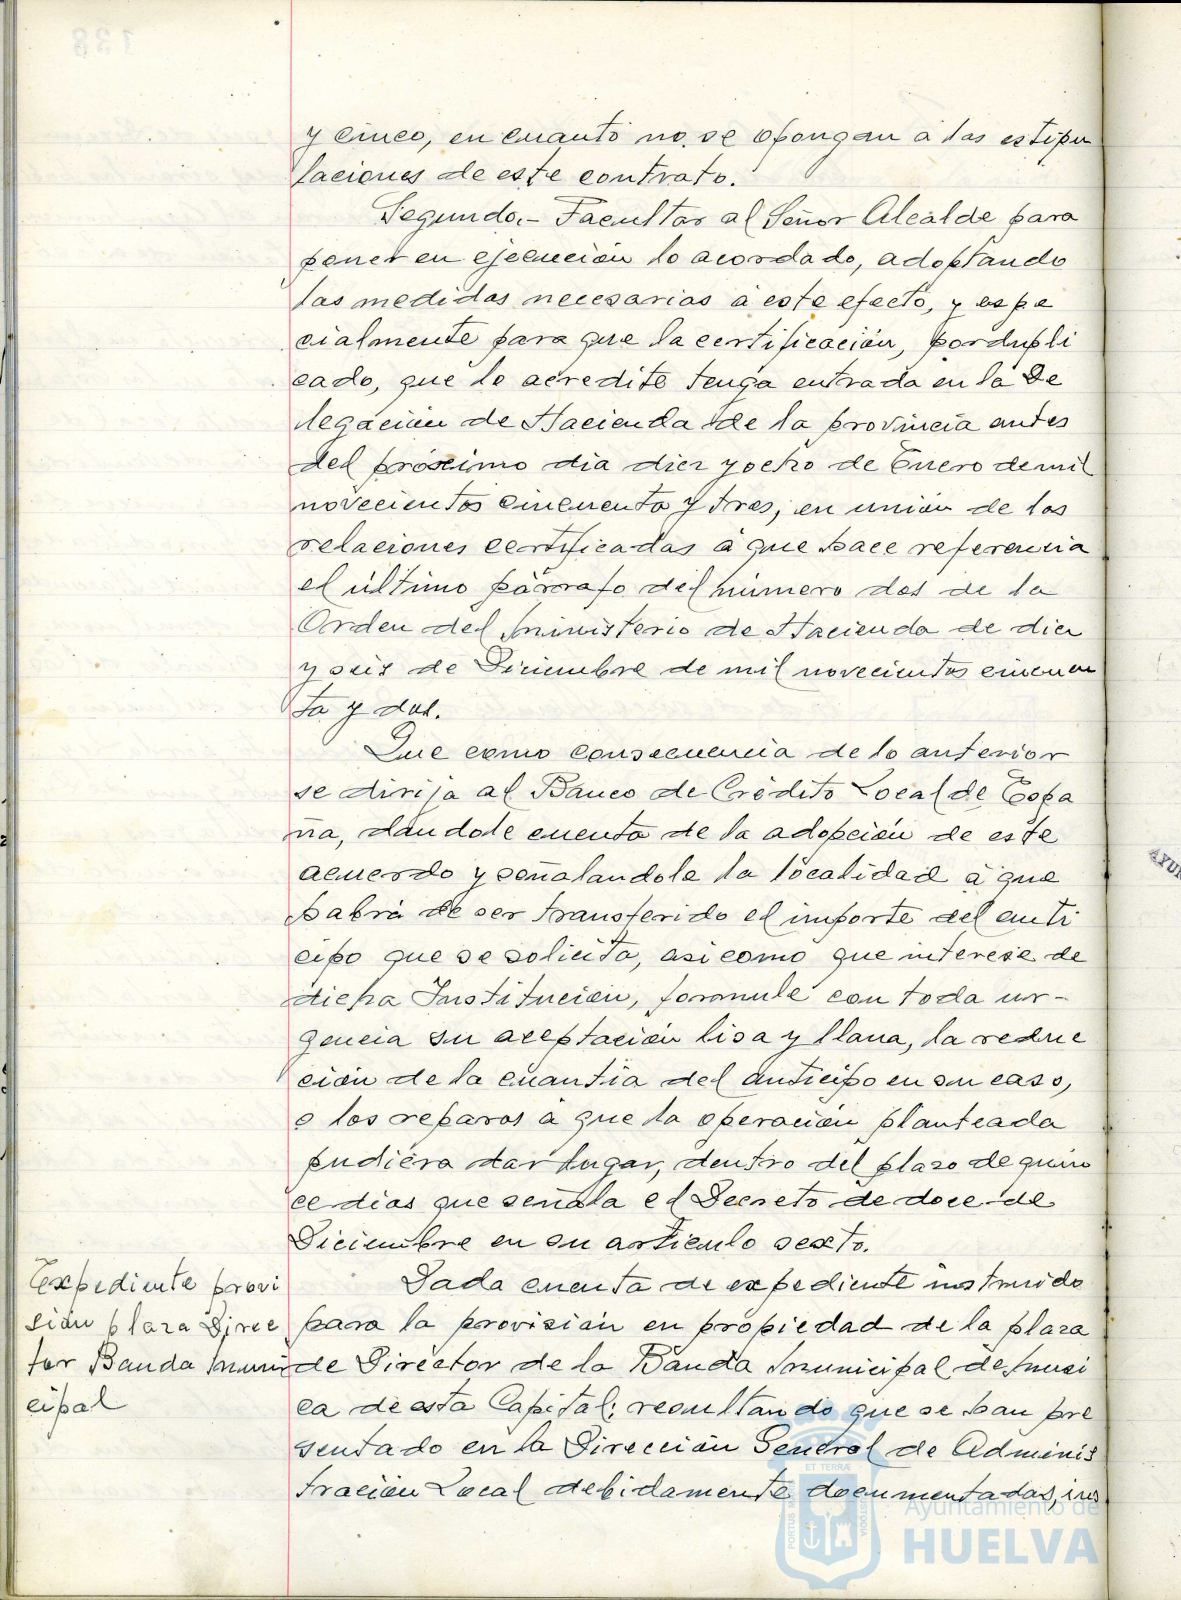 y cinco, en cuanto no se opongan á las estipu
laciones de este contrato.
Segundo.- Facultar al Señor Alcalde para
poner en ejecución lo acordado, adoptando
las medidas necesarias á este efecto, y espe
cialmente para que la certificación, por dupli
cado, que lo acredite tenga entrada en la De
legación de Hacienda de la provincia antes
del próximo dia diez y ocho de Enero de mil
novecientos cincuenta y tres, en unión de las
relaciones certificadas á que hace referencia
el último párrafo del número dos de la
Orden del Ministerio de Hacienda de diez
y seis de Diciembre de mil novecientos cincuen
ta y dos.
Que como consecuencia de lo anterior
se dirija al Banco de Crédito Local de Espa
ña, dandole cuenta de la adopción de este
acuerdo y señalandole la localidad á que
habrá de ser transferido el importe del anti
cipo que se solicita, asi como que interese de
dicha Institución, formule con toda ur-
gencia su aceptación lisa y llana, la reduc
ción de la cuantia del anticipo en su caso,
o los reparos á que la operación planteada
pudiera dar lugar, dentro del plazo de quin
ce dias que señala el Decreto de doce de
Diciembre en su articulo sexto.
Expediente provi
sión plaza Direc
tor Banda Muni
cipal
Dada cuenta de expediente instruido
para la provisión en propiedad de la plaza
de Director de la Banda Municipal de Musi
ca de esta Capital; resultando que se han pre
sentado en la Dirección General de Adminis
tración Local debidamente documentadas, ins
138
Ayuntamiento de
HUELVA